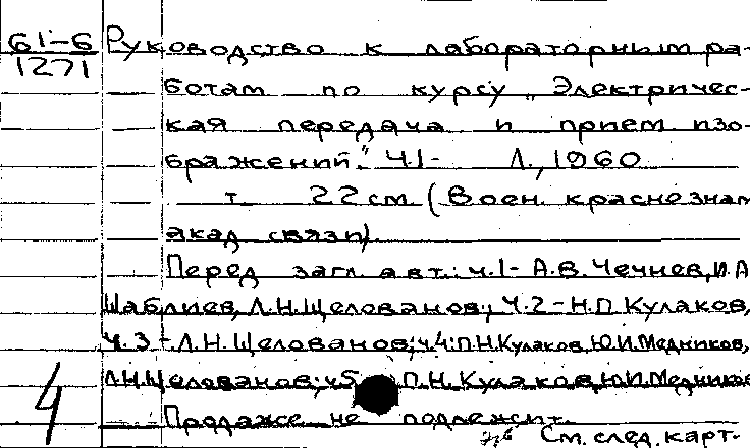 61-6 Руководство к лабораторным ра-
1271
ботам по курсу „Электричес-
кая передача и прием изо-
бражений." Ч.1- Л., 1960
т. 22 см. (Воен. краснознам
акад связи).
Перед загл. авт.: ч.1- А.В. Чечнев, И.А
Шаблиев, Л.Н. Щелованов; Ч.2-Н.П. Кулаков,
Ч.3-Л.Н. Щелованов; ч.4: П.Н. Кулаков, Ю.И. Медников,
Л.Н. Щелованов; ч5 П.Н. Кулаков, Ю.И. Медников
4 Продаже не подлежит.
См. след. карт.